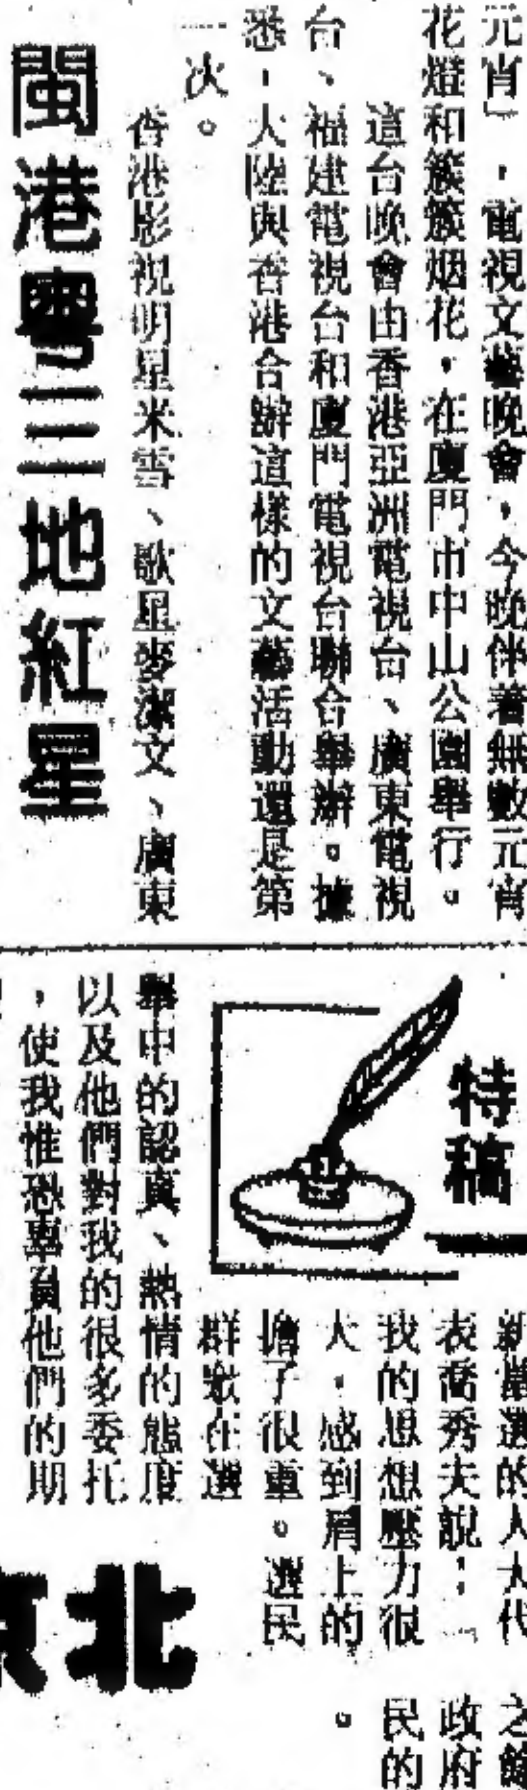 元宵」,電視文藝晚會,今晚伴着無數元宵
花燈和簇簇烟花,在廈門市中山公園舉行。
這台晚會由香港亞洲電視台、廣東電視
台、福建電視台和廈門電視台聯合舉辦。據
悉,大陸與香港合辦這樣的文藝活動還是第
一次。
香港影視明星米雪、歌星麥潔文、廣東
閩港粵三地紅星
特稿
新當選的人大代
表喬秀夫說:「
我的思想壓力很
大,感到肩上的
擔子很重。選民
群衆在選
舉中的認真、熱情的態度
以及他們對我的很多委托
,使我惟恐辜負他們的期
北京
之餘
政府
民的
。